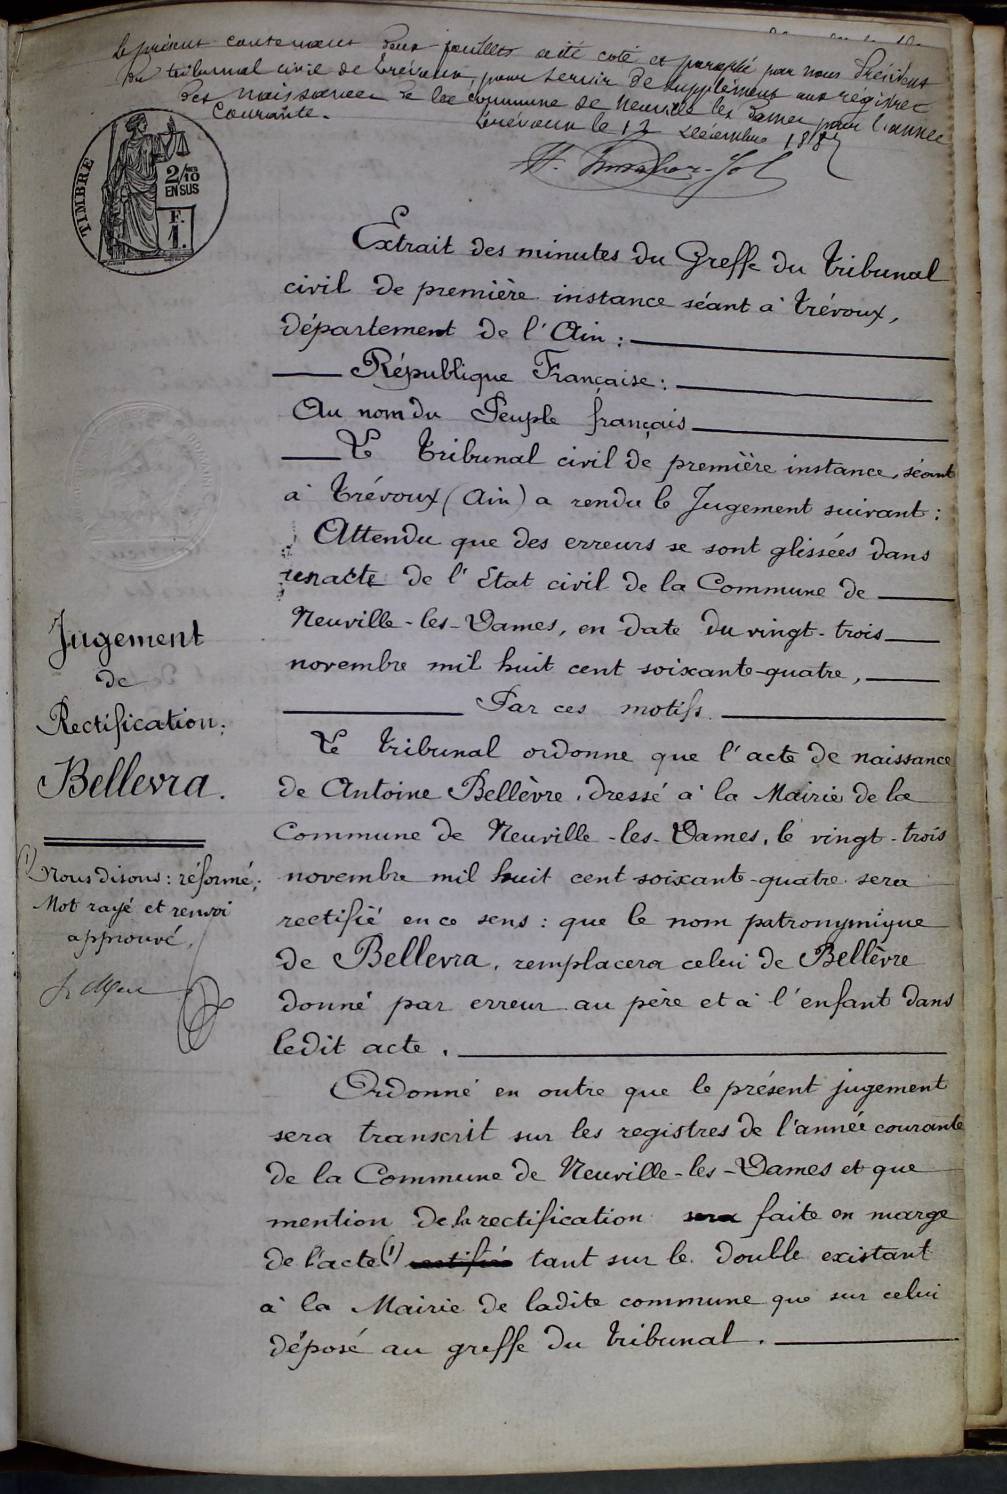 Le présent contenant deux feuillets a été coté et paraphé par nous Président
du tribunal civil de Trévoux, pour servir de supplément aux régistres
des naissances de la commune de Neuville les Dames pour l'année
courante.
Trévoux le 12 Décembre
TIMBRE
2/10 ES
EN SUS
F.
1.
Extrait des minutes du Greffe du Tribunal
civil de première instance séant à Trévoux,
département de l'Ain :
République Française :
Au nom du Peuple français
Le Tribunal civil de première instance, séant
à Trévoux (Ain) a rendu le Jugement suivant :
Attendu que des erreurs se sont glissées dans
un acte de l'Etat civil de la Commune de
Neuville-les-Dames, en date du vingt-trois
novembre mil huit cent soixante-quatre,
Par ces motifs
Le Tribunal ordonne que l'acte de naissance
de Antoine Bellèvre, dressé à la Mairie de la
Commune de Neuville-les-Dames, le vingt-trois
novembre mil huit cent soixante-quatre sera
rectifié en ce sens : que le nom patronymique
de Bellevra, remplacera celui de Bellèvre
donné par erreur au père et à l'enfant dans
ledit acte.
Ordonné en outre que le présent jugement
sera transcrit sur les registres de l'année courante
de la Commune de Neuville-les-Dames et que
mention de la rectification sera faite en marge
de l'acte (1) rectifié tant sur le double existant
à la Mairie de ladite commune que sur celui
déposé au greffe du tribunal.
Jugement
de
Rectification.
Bellevra.
(1) Nous disons : réformé ;
Mot rayé et renvoi
approuvé.